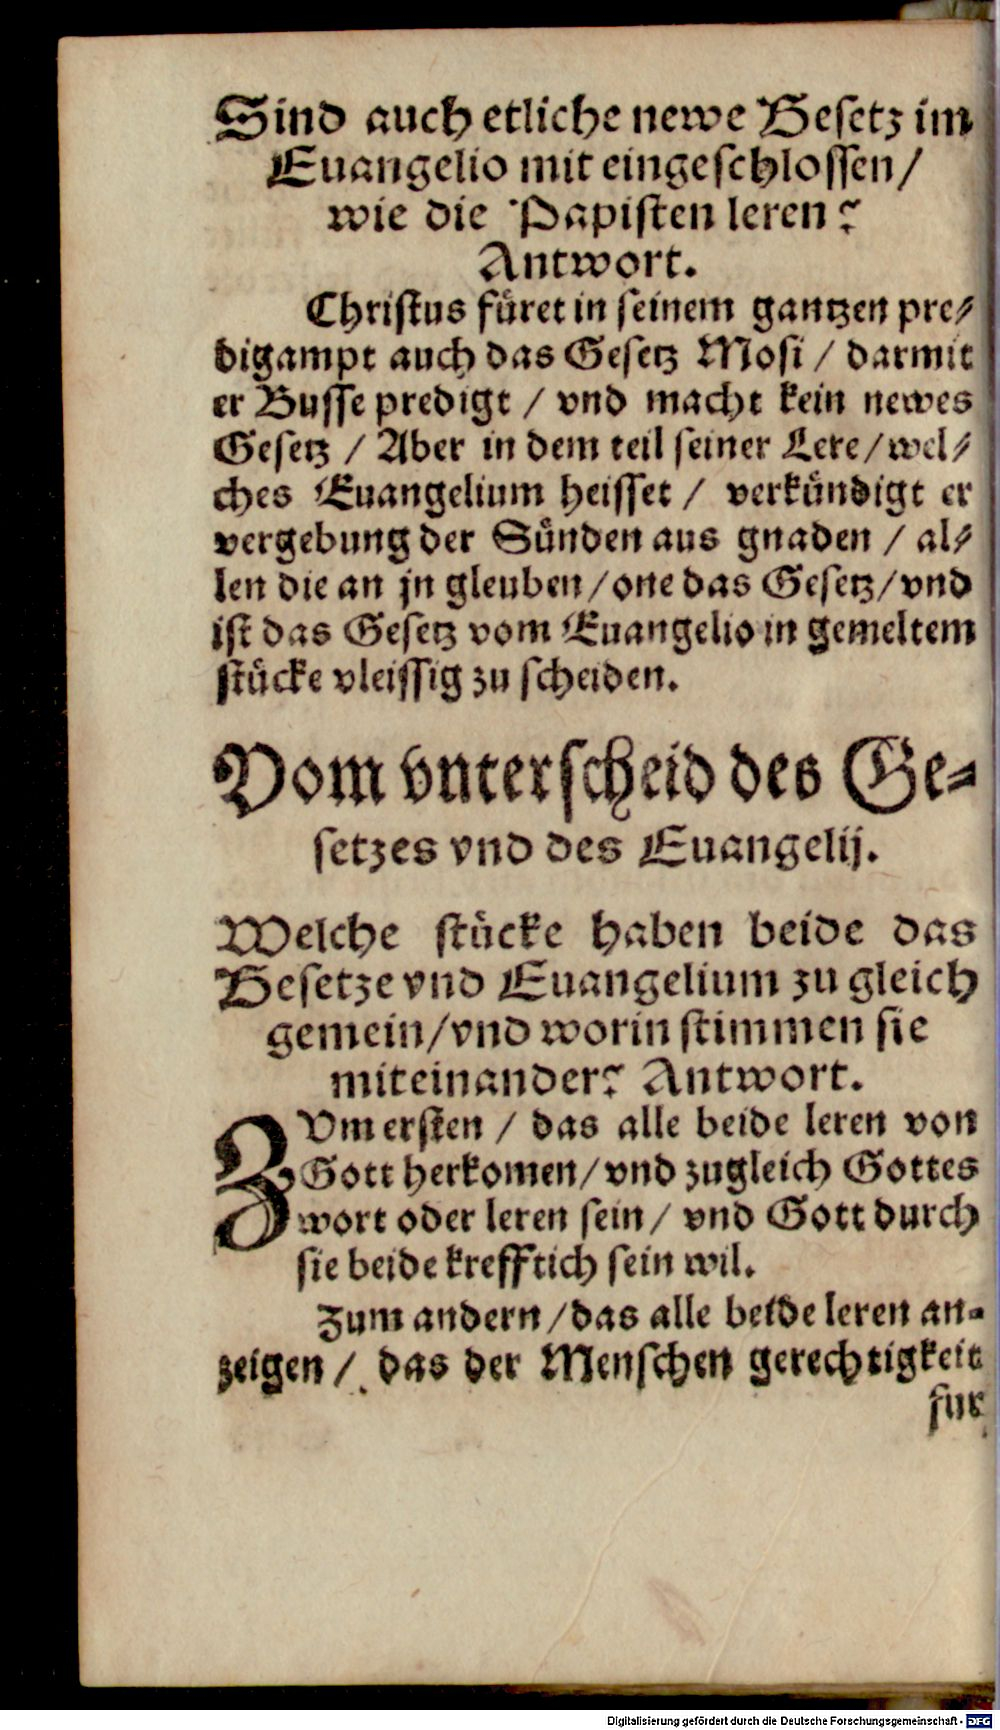 Sind auch etliche newe Gesetz im
Euangelio mit eingeschlossen/
wie die Papisten leren?
Antwort.
Christus füret in seinem gantzen pre⸗
digampt auch das Gesetz Mosi / darmit
er Busse predigt / vnd macht kein newes
Gesetz / Aber in dem teil seiner Lere/wel⸗
ches Euangelium heisset / verkündigt er
vergebung der Sünden aus gnaden / al⸗
len die an jn gleuben/one das Gesetz/vnd
ist das Gesetz vom Euangelio in gemeltem
stücke vleissig zu scheiden.
Vom vnterscheid des Ge⸗
setzes vnd des Euangelij.
Welche stücke haben beide das
Gesetze vnd Euangelium zu gleich
gemein/vnd worin stimmen sie
miteinander? Antwort.
ZVm ersten / das alle beide leren von
Gott herkomen/vnd zugleich Gottes
wort oder leren sein/ vnd Gott durch
sie beide krefftich sein wil.
Zum andern /das alle beide leren an⸗
zeigen / das der Menschen gerechtigkeit
fur
Digitalisierung gefördert durch die Deutsche Forschungsgemeinschaft - DFG